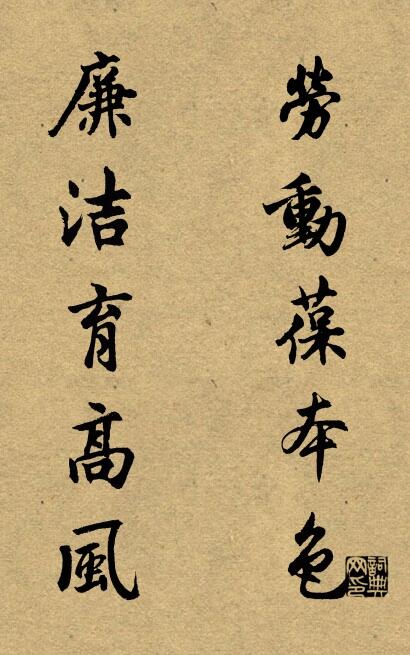 勞動葆本色
廉洁育高風
詞典网印